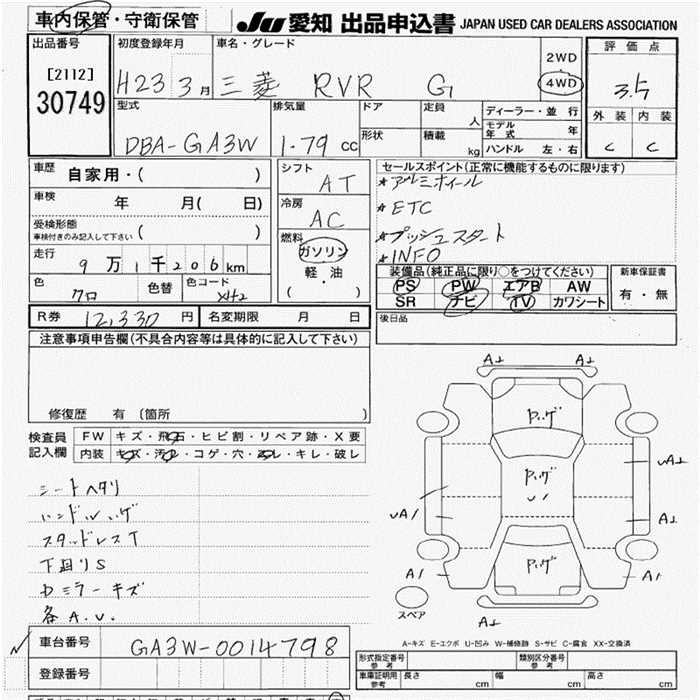 車内保管・守衛保管
JU 愛知 出品申込書 JAPAN USED CAR DEALERS ASSOCIATION
出品番号
[2112]
30749
初度登録年月
H23 3月
車名・グレード
三菱 RVR G
2WD
4WD
評価点
3.5
外装 内装
C C
型式
DBA-GA3W
排気量
1.79 cc
ドア
形状
定員
人
積載
kg
ディーラー・並行
モデル年式 年
ハンドル 左・右
車歴
自家用・( )
車検
年 月( 日)
受検形態
車検付きのみ記入して下さい ( )
走行
9万1千206km
色
クロ
色替
色コード
X42
シフト
AT
冷房
AC
燃料
ガソリン
軽・油
( )
セールスポイント(正常に機能するものに限ります)
*アルミホイール
*ETC
*プッシュスタート
*INFO
装備品(純正品に限り○をつけてください)
PS PW エアB AW
SR ナビ TV カワシート
新車保証書
有・無
R券 12,330円
名変期限 月 日
後日品
注意事項申告欄(不具合内容等は具体的に記入して下さい)
修復歴 有(箇所 )
検査員記入欄
FW キズ・飛石・ヒビ割・リペア跡・X要
内装 キズ・汚れ・コゲ・穴・スレ・キレ・破レ
シートヘタリ
ハンドルハゲ
スタッドレスT
下廻りS
Dミラーキズ
条A.U.
A2 A2
P.ハゲ
P.ハゲ
U1
P.ハゲ
UA2
UA1
A2
A1
A1
A2
スペア
A-キズ E-エクボ U-凹み W-補修跡 S-サビ C-腐食 XX-交換済
車台番号
GA3W-0014798
登録番号
形式指定番号 参考
類別区分番号 参考
車庫証明用 参考
長さ cm
幅 cm
高さ cm